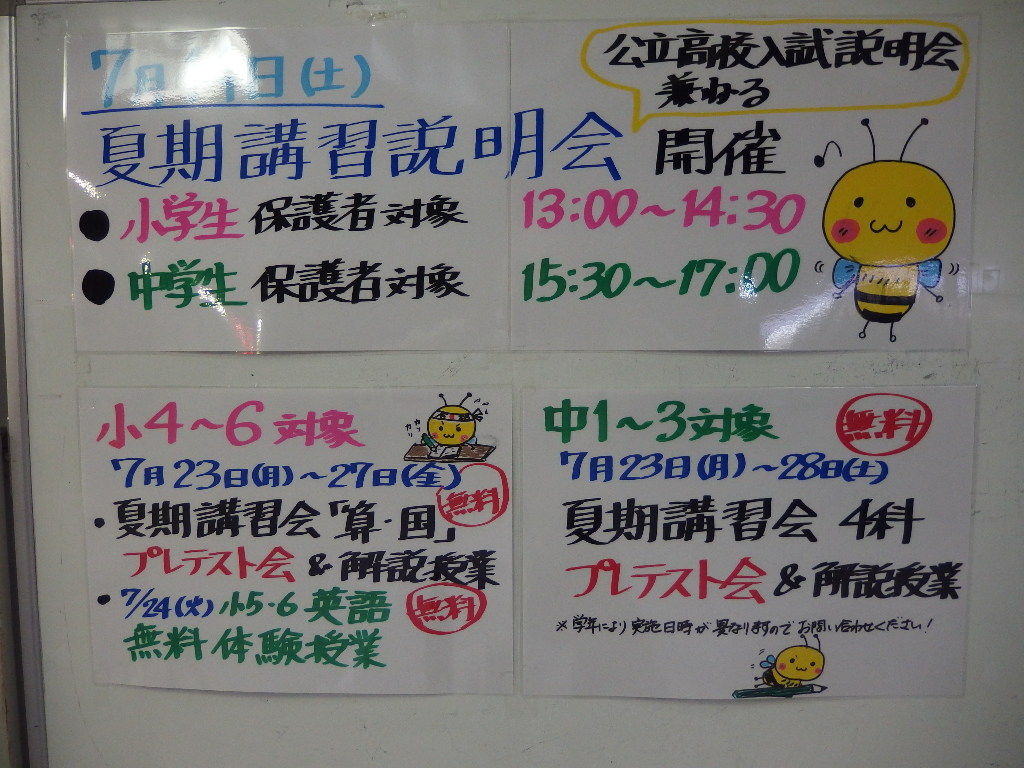 7月 日(土)
公立高校入試説明会
兼ねる
夏期講習説明会 開催
●小学生 保護者対象 13:00～14:30
●中学生 保護者対象 15:30～17:00
小4～6対象
7月23日(月)～27日(金)
無料
・夏期講習会「算・国」
プレテスト会&解説授業
・7/24(火)小5・6 英語
無料
無料体験授業
中1～3対象
無料
7月23日(月)～28日(土)
夏期講習会 4科
プレテスト会&解説授業
※学年により実施日時が異なりますのでお問い合わせください!